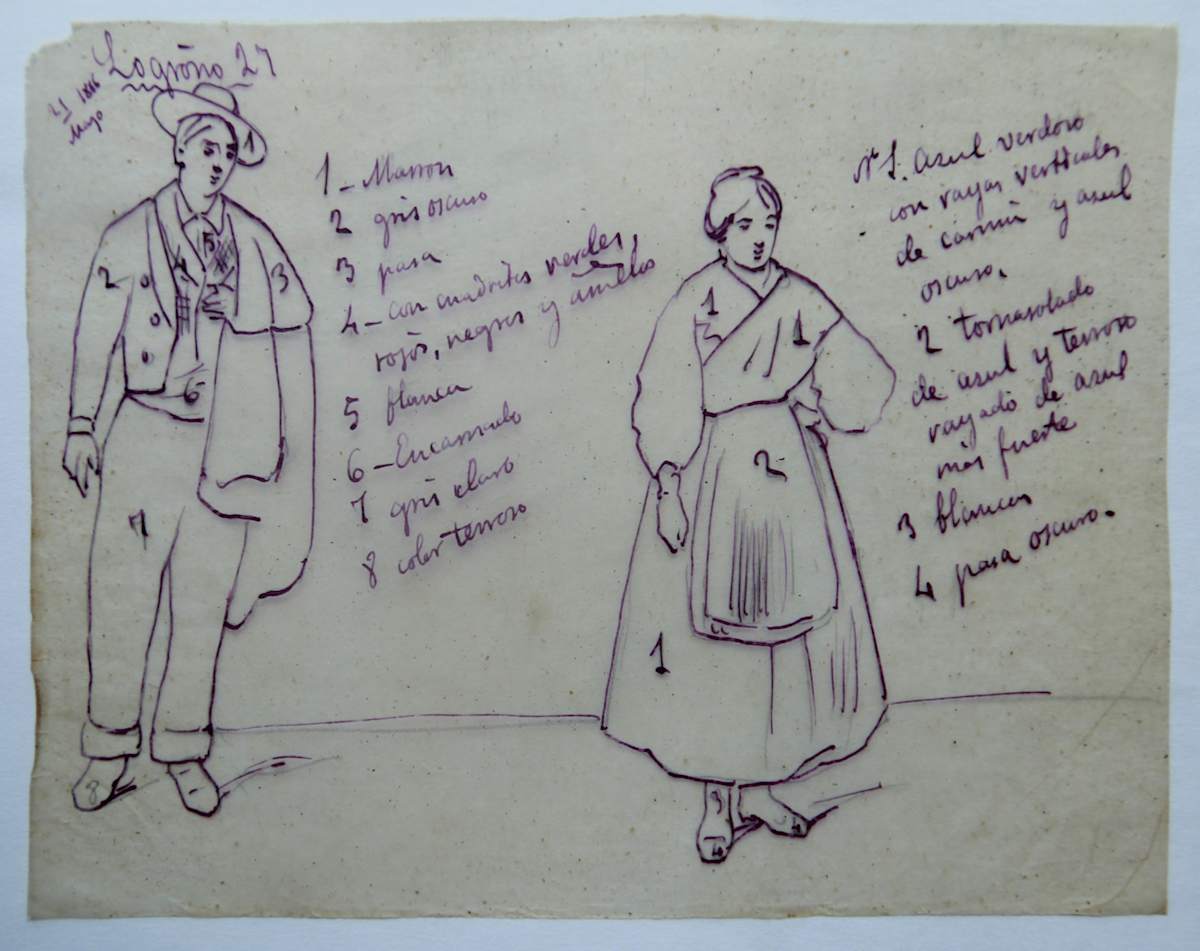 Logroño 27
21 1886
Mayo
1 - Marron
2 gris oscuro
3 pasa
4 - con cuadritos verdes,
rojos, negros y amarillos
5 blanca
6 - Encarnado
7 gris claro
8 color terroso
Nº 1. azul verdoso
con rayas verticales
de carmin y azul
oscuro.
2 tornasolado
de azul y terroso
rayado de azul
más fuerte
3 blancas
4 pasa oscuro.
1
2
3
4
5
6
7
8
1
1
3
2
1
3
4
4